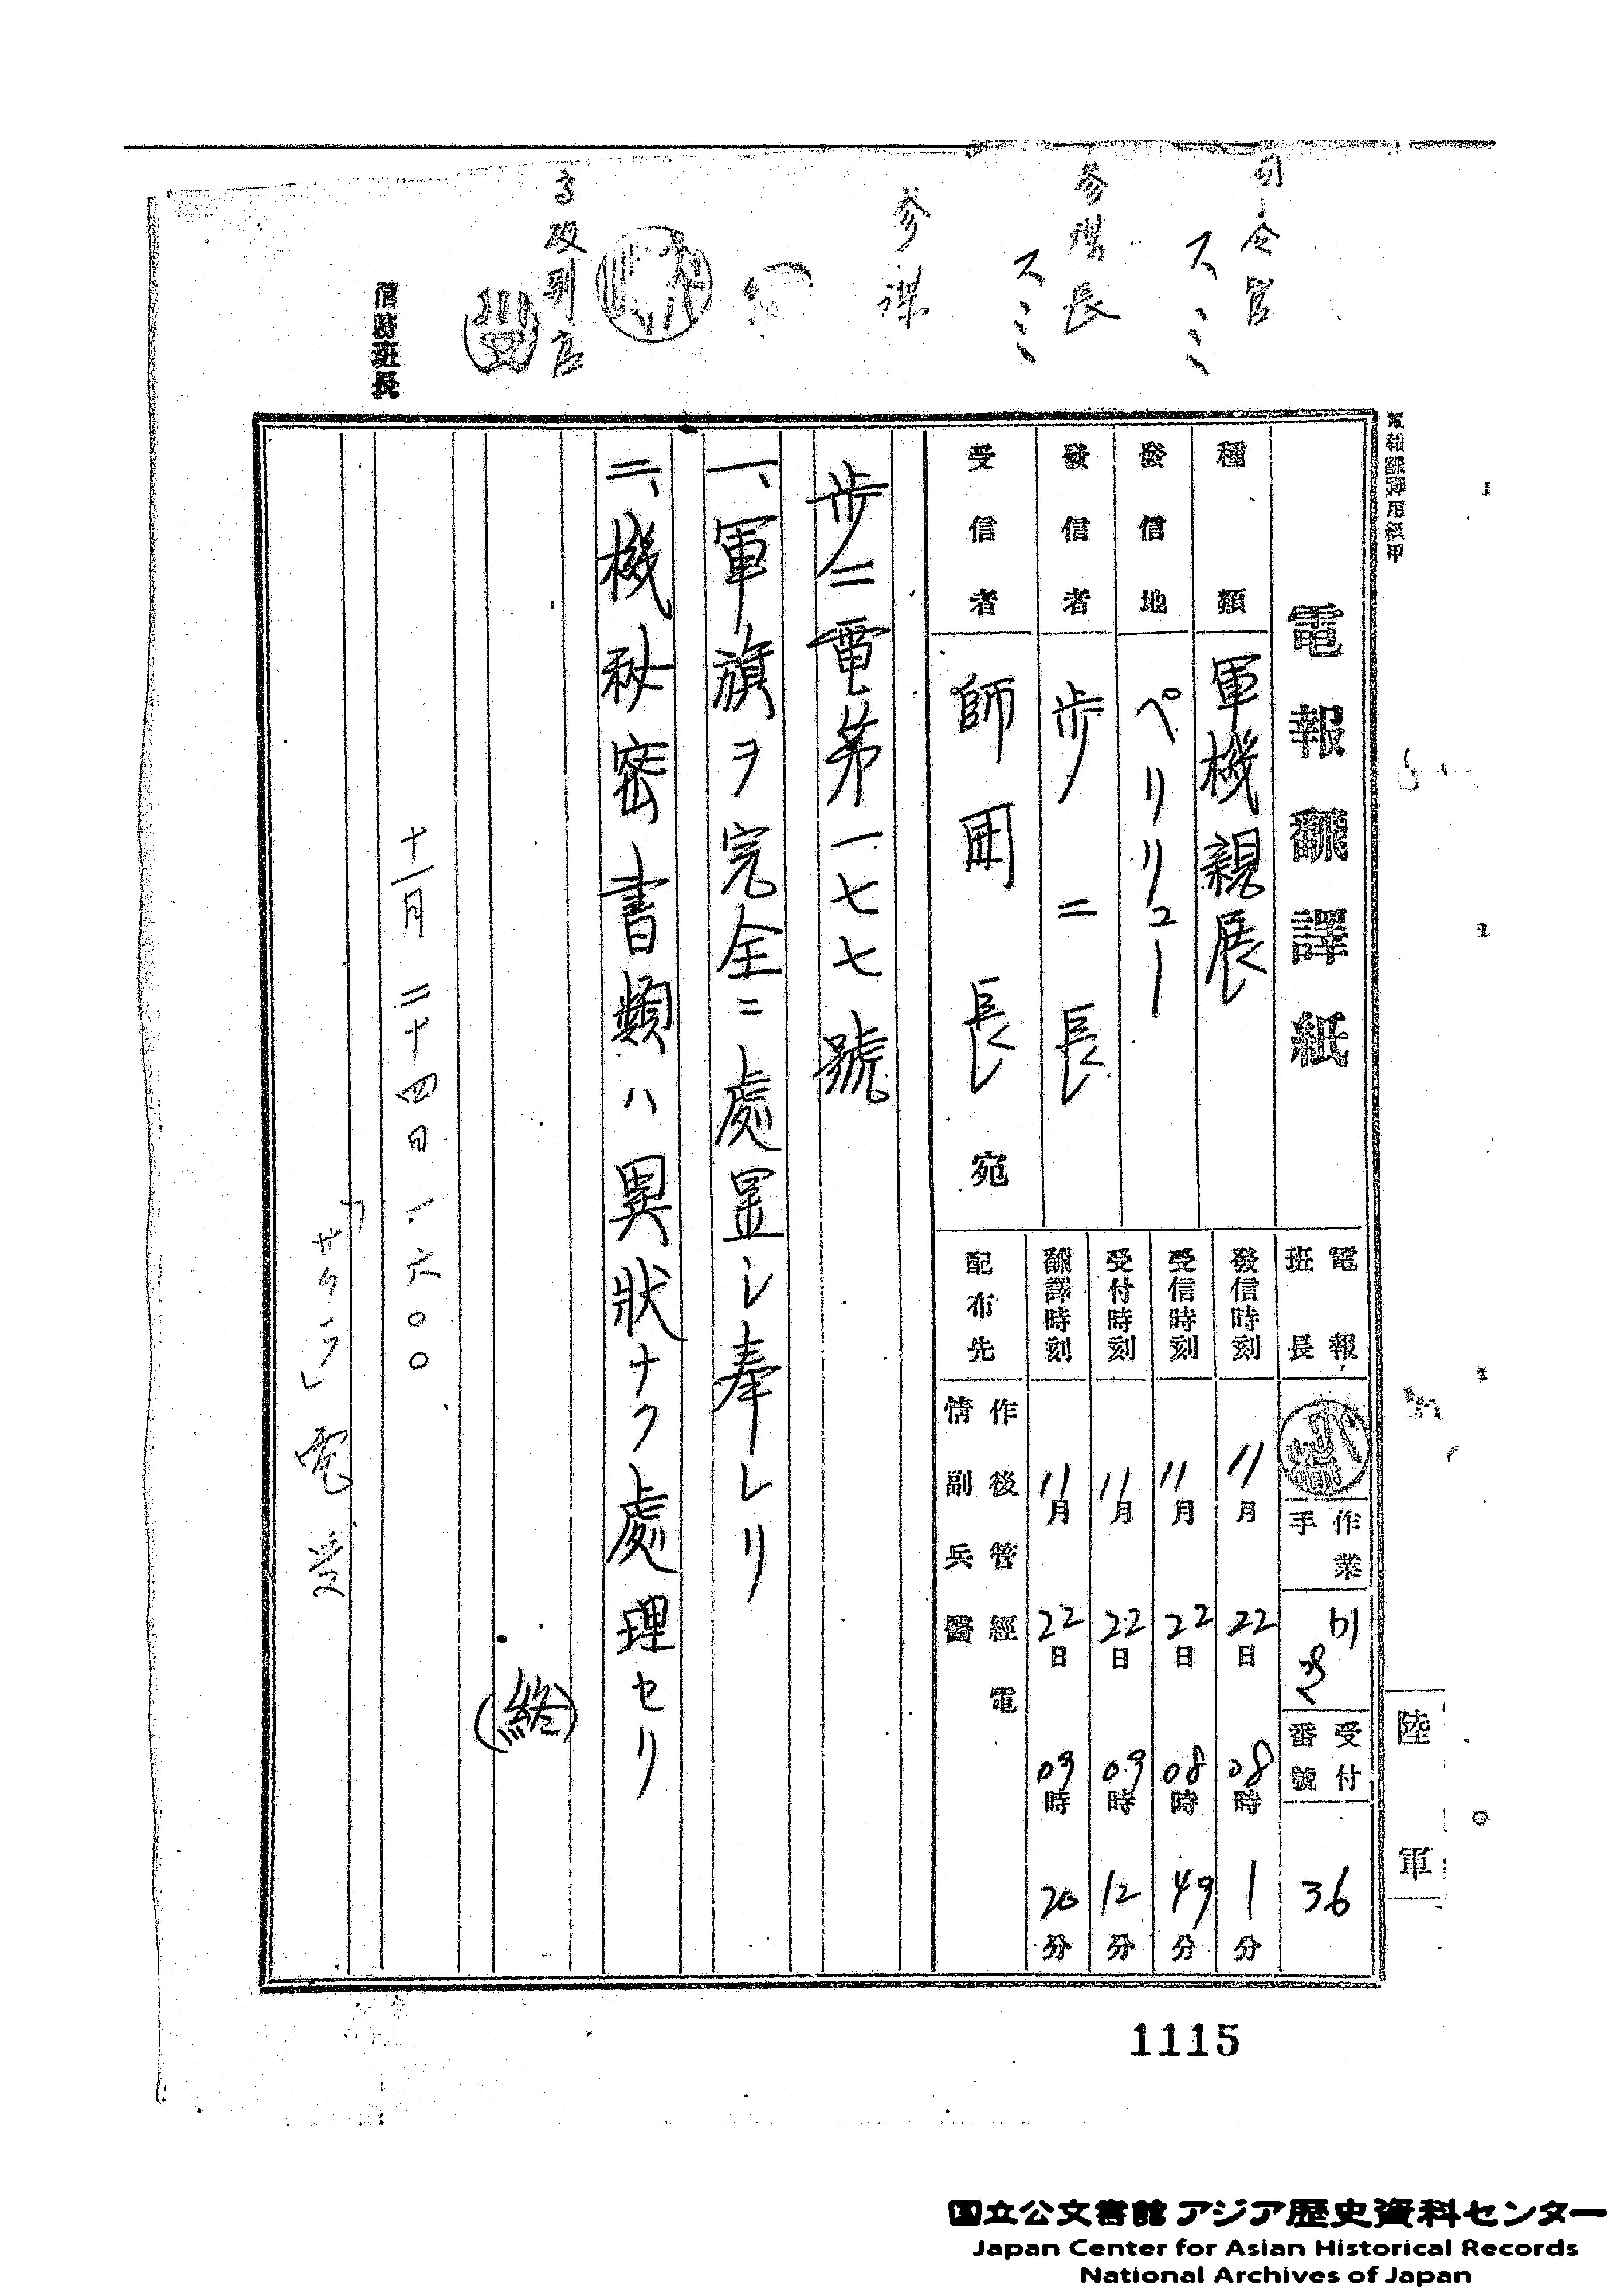 司令官
スミ
参謀長
スミ
参謀
高級副官
電報飜譯用紙甲
電報飜譯紙
種類 軍機親展
發信地 ペリリュー
發信者 歩二長
受信者 師團長宛
電報班長
作業手
受付番號 36
發信時刻 11月22日08時1分
受信時刻 11月22日08時49分
受付時刻 11月22日09時12分
飜譯時刻 11月22日09時20分
配布先 作後管經電
情副兵醫
陸軍
歩二電第一七七號
一、軍旗ヲ完全ニ處置シ奉レリ
二、機秘密書類ハ異狀ナク處理セリ
(終)
十一月二十四日一六〇〇
「サクラ」電受
1115
国立公文書館 アジア歴史資料センター
Japan Center for Asian Historical Records
National Archives of Japan